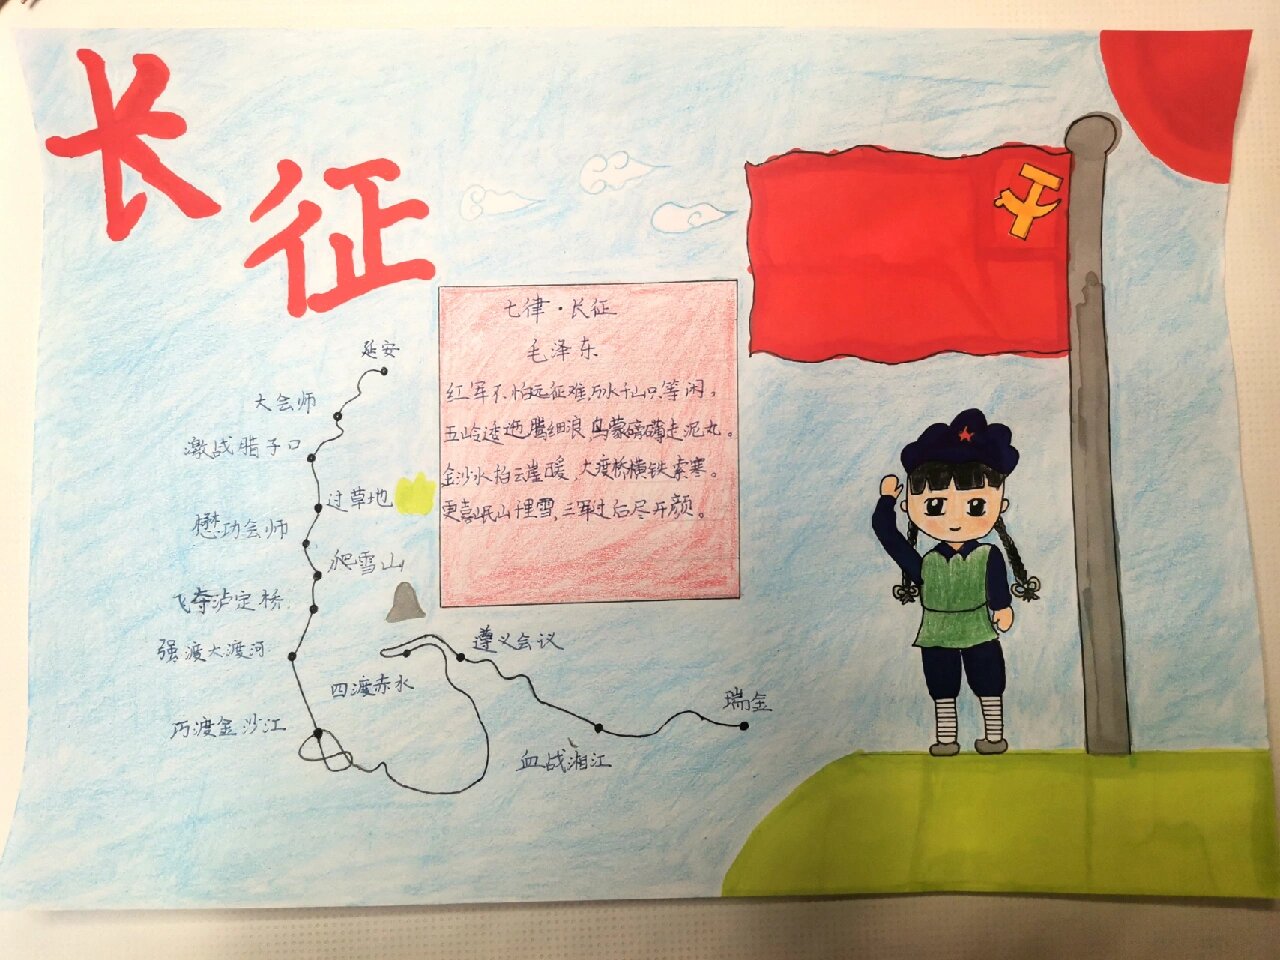 长征
七律·长征
毛泽东
红军不怕远征难,万水千山只等闲。
五岭逶迤腾细浪,乌蒙磅礴走泥丸。
金沙水拍云崖暖,大渡桥横铁索寒。
更喜岷山千里雪,三军过后尽开颜。
延安
大会师
激战腊子口
过草地
懋功会师
爬雪山
飞夺泸定桥
强渡大渡河
遵义会议
四渡赤水
瑞金
巧渡金沙江
血战湘江